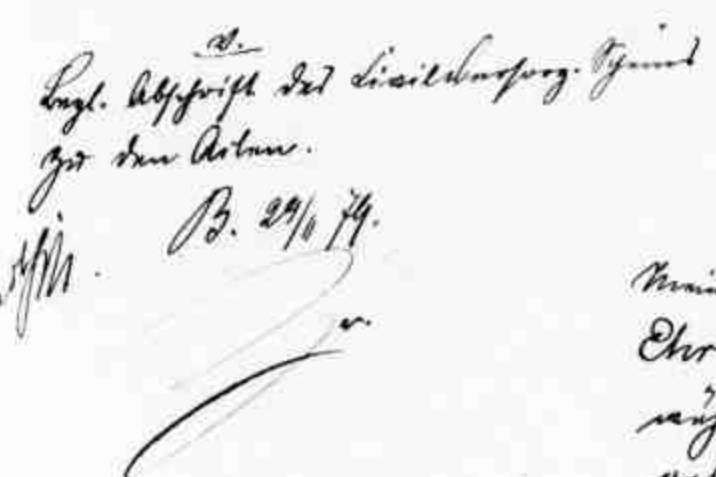 v.
Begl. Abschrift des Civilversorg. Scheins
zu den Acten.
B. 29/11 79.
v.
Mein
Ehr